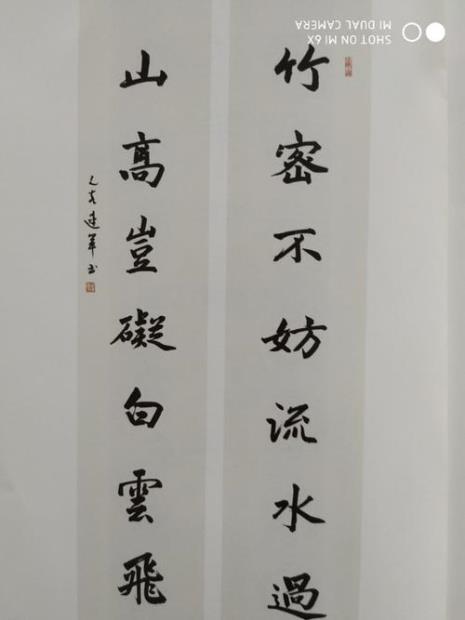 竹密不妨流水過
山高豈礙白雲飛
建军书
SHOT ON MI 6X
MI DUAL CAMERA